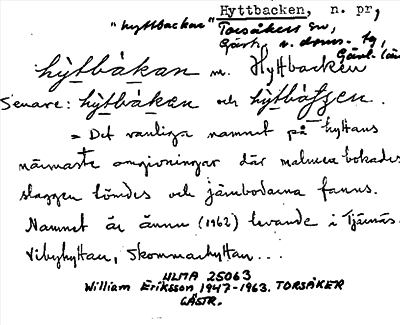 Hyttbacken, n. pr,
"hyttbackar" Torsåkers sn,
Gästr. n. doms. tg,
Gävl. län
hy̆tbàkan m. Hyttbacken
Senare: hy̆tbàken och hy̆tbàʃʃen.
= Det vanliga namnet på hyttans
närmaste omgivningar där malmen bokades
slaggen tömdes och järnbodarna fanns.
Namnet är ännu (1962) levande i Tjärnäs.
Vibyhyttan, Skommarhyttan...
ULMA 25063
William Eriksson 1947-1963. TORSÅKER
GÄSTR.